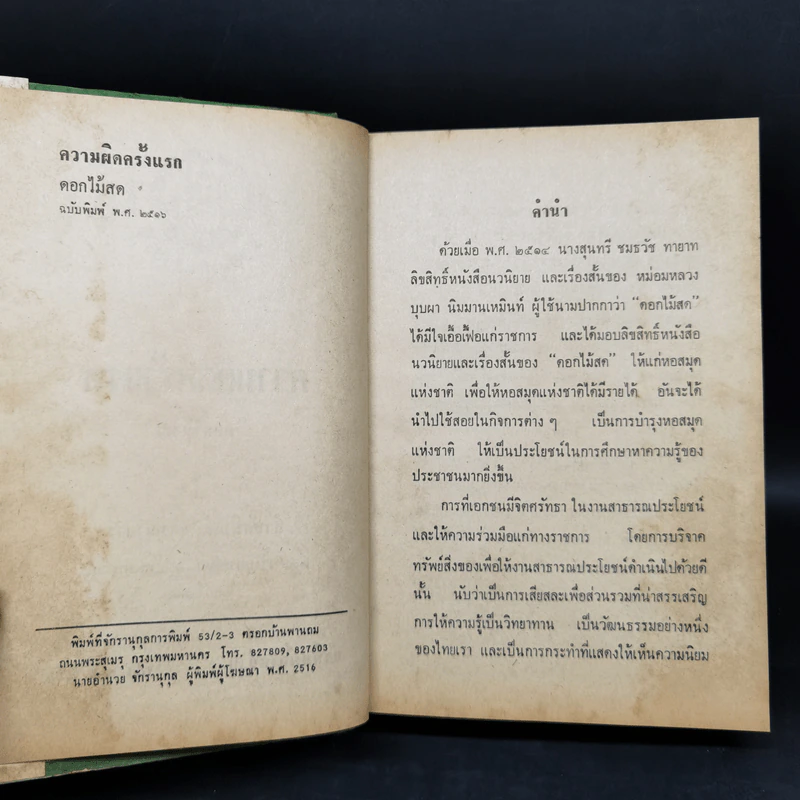 ความผิดครั้งแรก
ดอกไม้สด
ฉบับพิมพ์ พ.ศ. ๒๕๑๖
พิมพ์ที่จักรานุกูลการพิมพ์ 53/2-3 ตรอกบ้านพานถม
ถนนพระสุเมรุ กรุงเทพมหานคร โทร. 827809, 827603
นายอำนวย จักรานุกูล ผู้พิมพ์ผู้โฆษณา พ.ศ. 2516
คำนำ
ด้วยเมื่อ พ.ศ. ๒๕๑๔ นางสุนทรี ชมธวัช ทายาท
ลิขสิทธิ์หนังสือนวนิยาย และเรื่องสั้นของ หม่อมหลวง
บุบผา นิมมานเหมินท์ ผู้ใช้นามปากกาว่า “ดอกไม้สด”
ได้มีใจเอื้อเฟื้อแก่ราชการ และได้มอบลิขสิทธิ์หนังสือ
นวนิยายและเรื่องสั้นของ “ดอกไม้สด” ให้แก่หอสมุด
แห่งชาติ เพื่อให้หอสมุดแห่งชาติได้มีรายได้ อันจะได้
นำไปใช้สอยในกิจการต่าง ๆ เป็นการบำรุงหอสมุด
แห่งชาติ ให้เป็นประโยชน์ในการศึกษาหาความรู้ของ
ประชาชนมากยิ่งขึ้น
การที่เอกชนมีจิตศรัทธา ในงานสาธารณประโยชน์
และให้ความร่วมมือแก่ทางราชการ โดยการบริจาค
ทรัพย์สิ่งของเพื่อให้งานสาธารณประโยชน์ดำเนินไปด้วยดี
นั้น นับว่าเป็นการเสียสละเพื่อส่วนรวมที่น่าสรรเสริญ
การให้ความรู้เป็นวิทยาทาน เป็นวัฒนธรรมอย่างหนึ่ง
ของไทยเรา และเป็นการกระทำที่แสดงให้เห็นความนิยม